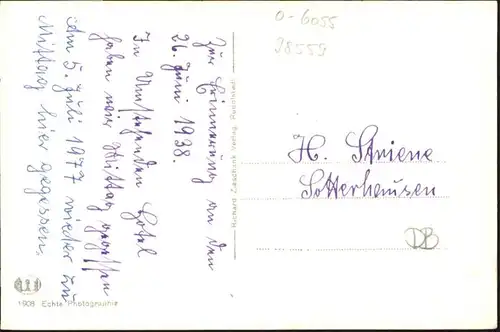 Zur Erinnerung an den
26. Juni 1938.
In Umstehenden Hotel
haben wir Mittag gegessen
Am 5. Juli 1977 wieder zu
Mittag hier gegessen.
Richard Zieschank Verlag,
0-6055
28559
H. Striene
Sotterhausen
DB
1908 Echte Photographie